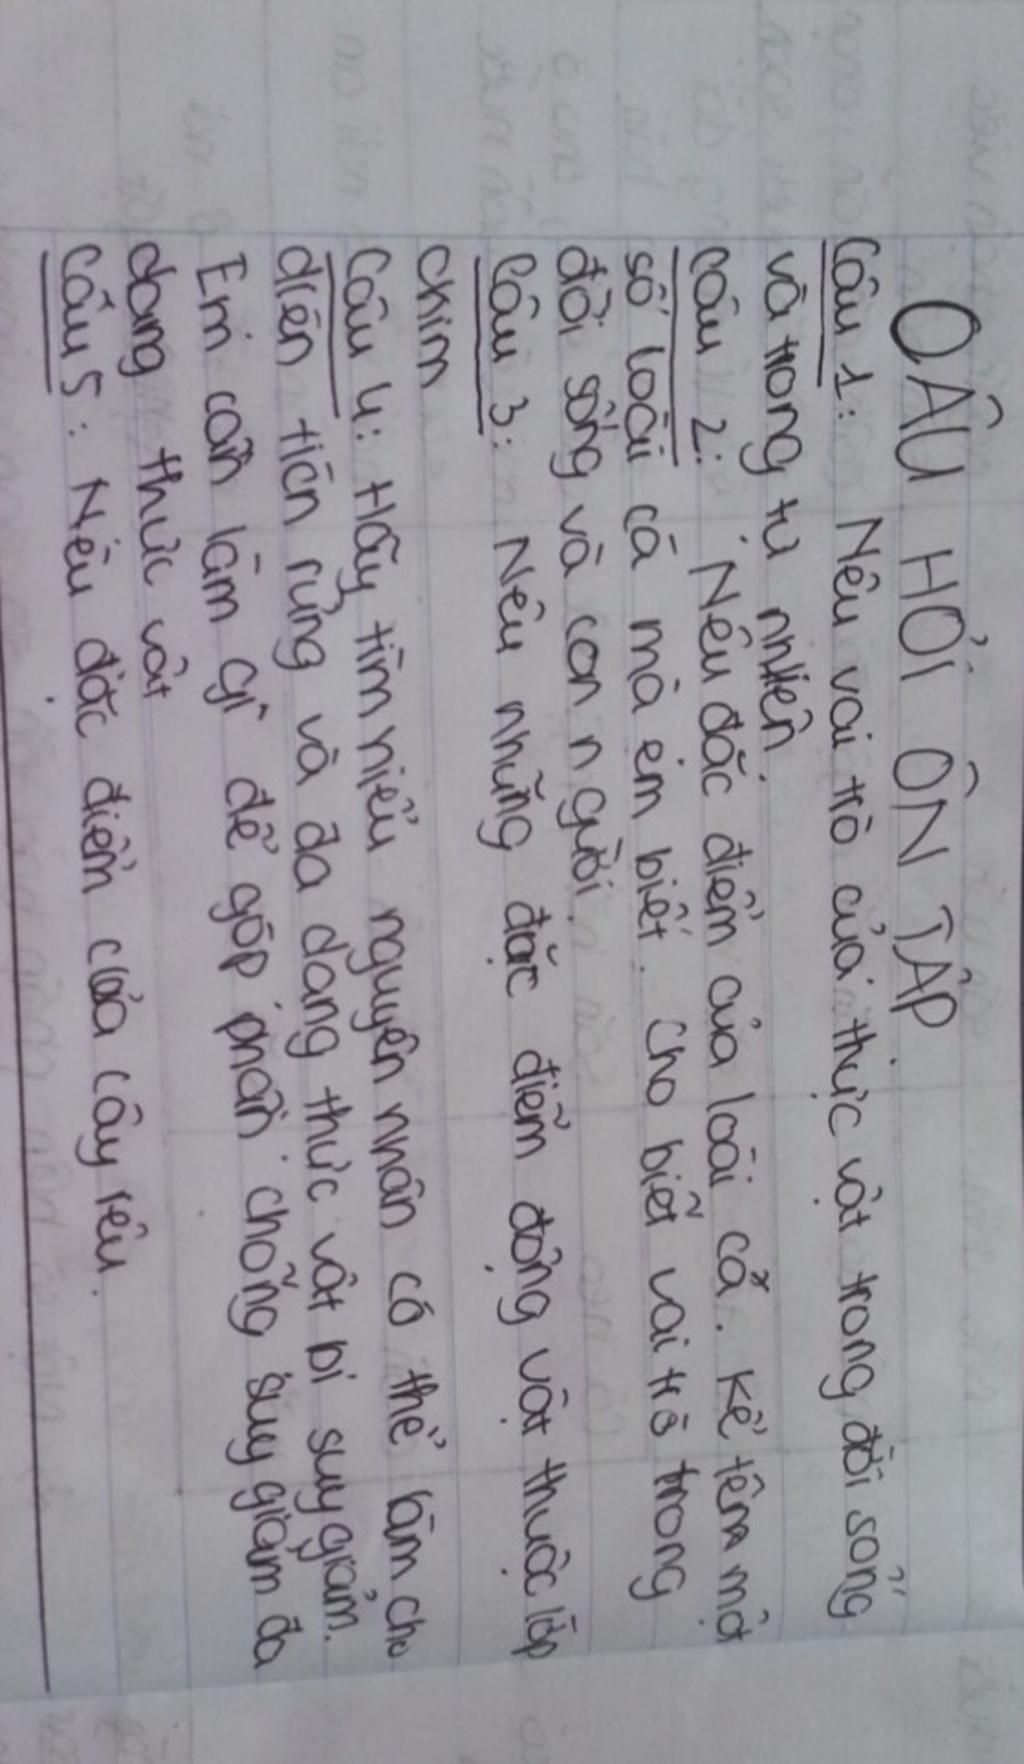 CÂU HỎI ÔN TẬP
Câu 1: Nêu vai trò của thực vật trong đời sống
và trong tự nhiên.
Câu 2: Nêu đặc điểm của loài cá. Kể tên một
số loài cá mà em biết. Cho biết vai trò trong
đời sống và con người.
Câu 3: Nêu những đặc điểm động vật thuộc lớp
chim
Câu 4: Hãy tìm hiểu nguyên nhân có thể làm cho
diện tiện rừng và đa dạng thực vật bị suy giảm.
Em cần làm gì để góp phần chống suy giảm đa
dạng thực vật
Câu 5: Nêu đặc điểm của cây rêu.